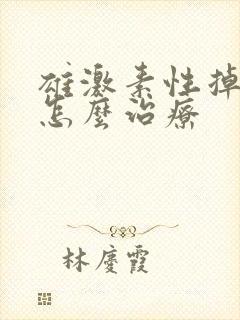 雄激素性掉
怎麼治療
林慶霞